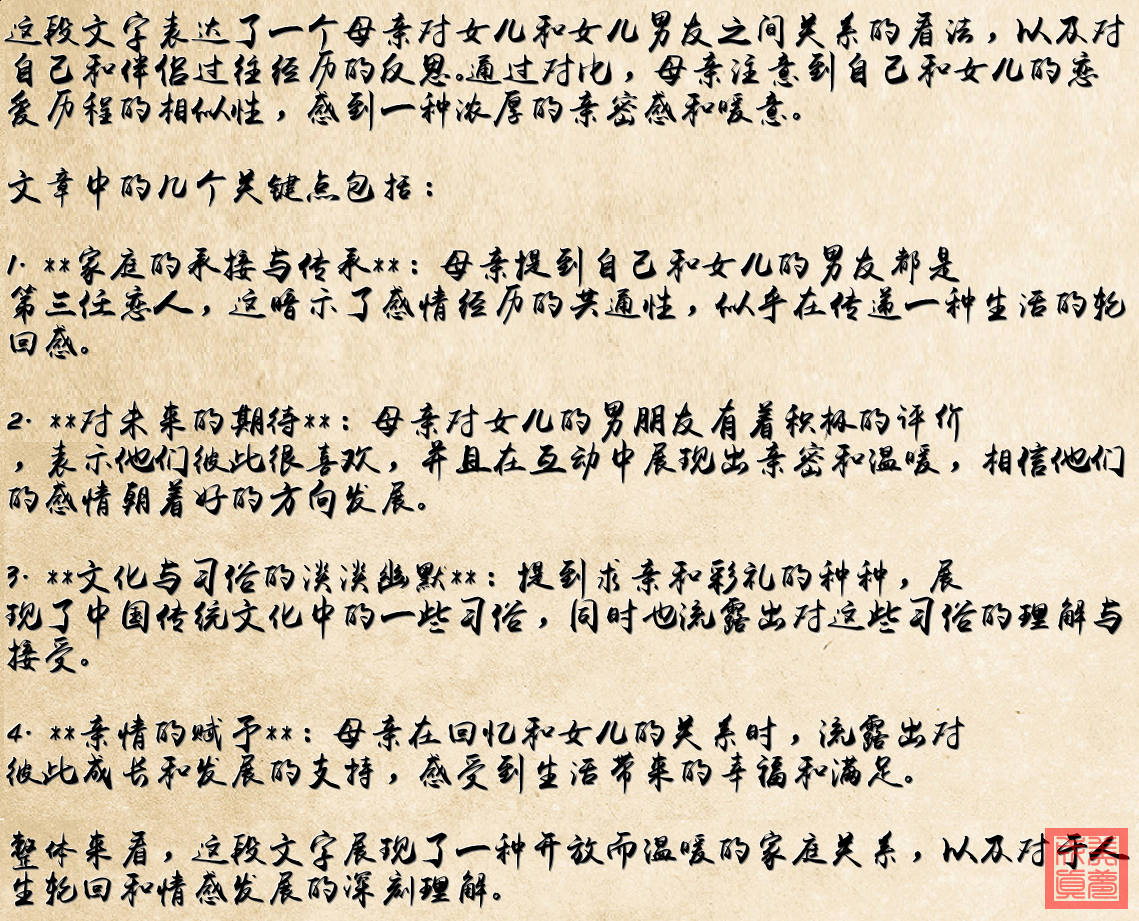 这段文字表达了一个母亲对女儿和女儿男友之间关系的看法，以及对
自己和伴侣过往经历的反思。通过对比，母亲注意到自己和女儿的恋
爱历程的相似性，感到一种浓厚的亲密感和暖意。
文章中的几个关键点包括：
1. **家庭的承接与传承**：母亲提到自己和女儿的男友都是
第三任恋人，这暗示了感情经历的共通性，似乎在传递一种生活的轮
回感。
2. **对未来的期待**：母亲对女儿的男朋友有着积极的评价
，表示他们彼此很喜欢，并且在互动中展现出亲密和温暖，相信他们
的感情朝着好的方向发展。
3. **文化与习俗的淡淡幽默**：提到求亲和彩礼的种种，展
现了中国传统文化中的一些习俗，同时也流露出对这些习俗的理解与
接受。
4. **亲情的赋予**：母亲在回忆和女儿的关系时，流露出对
彼此成长和发展的支持，感受到生活带来的幸福和满足。
整体来看，这段文字展现了一种开放而温暖的家庭关系，以及对于人
生轮回和情感发展的深刻理解。